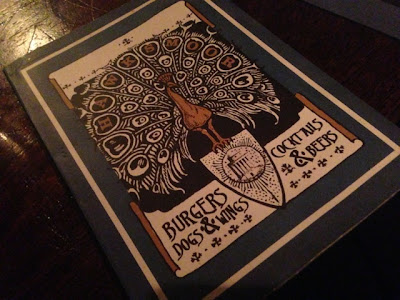 BURGERS
DOGS & WINGS
COCKTAILS
& BEERS